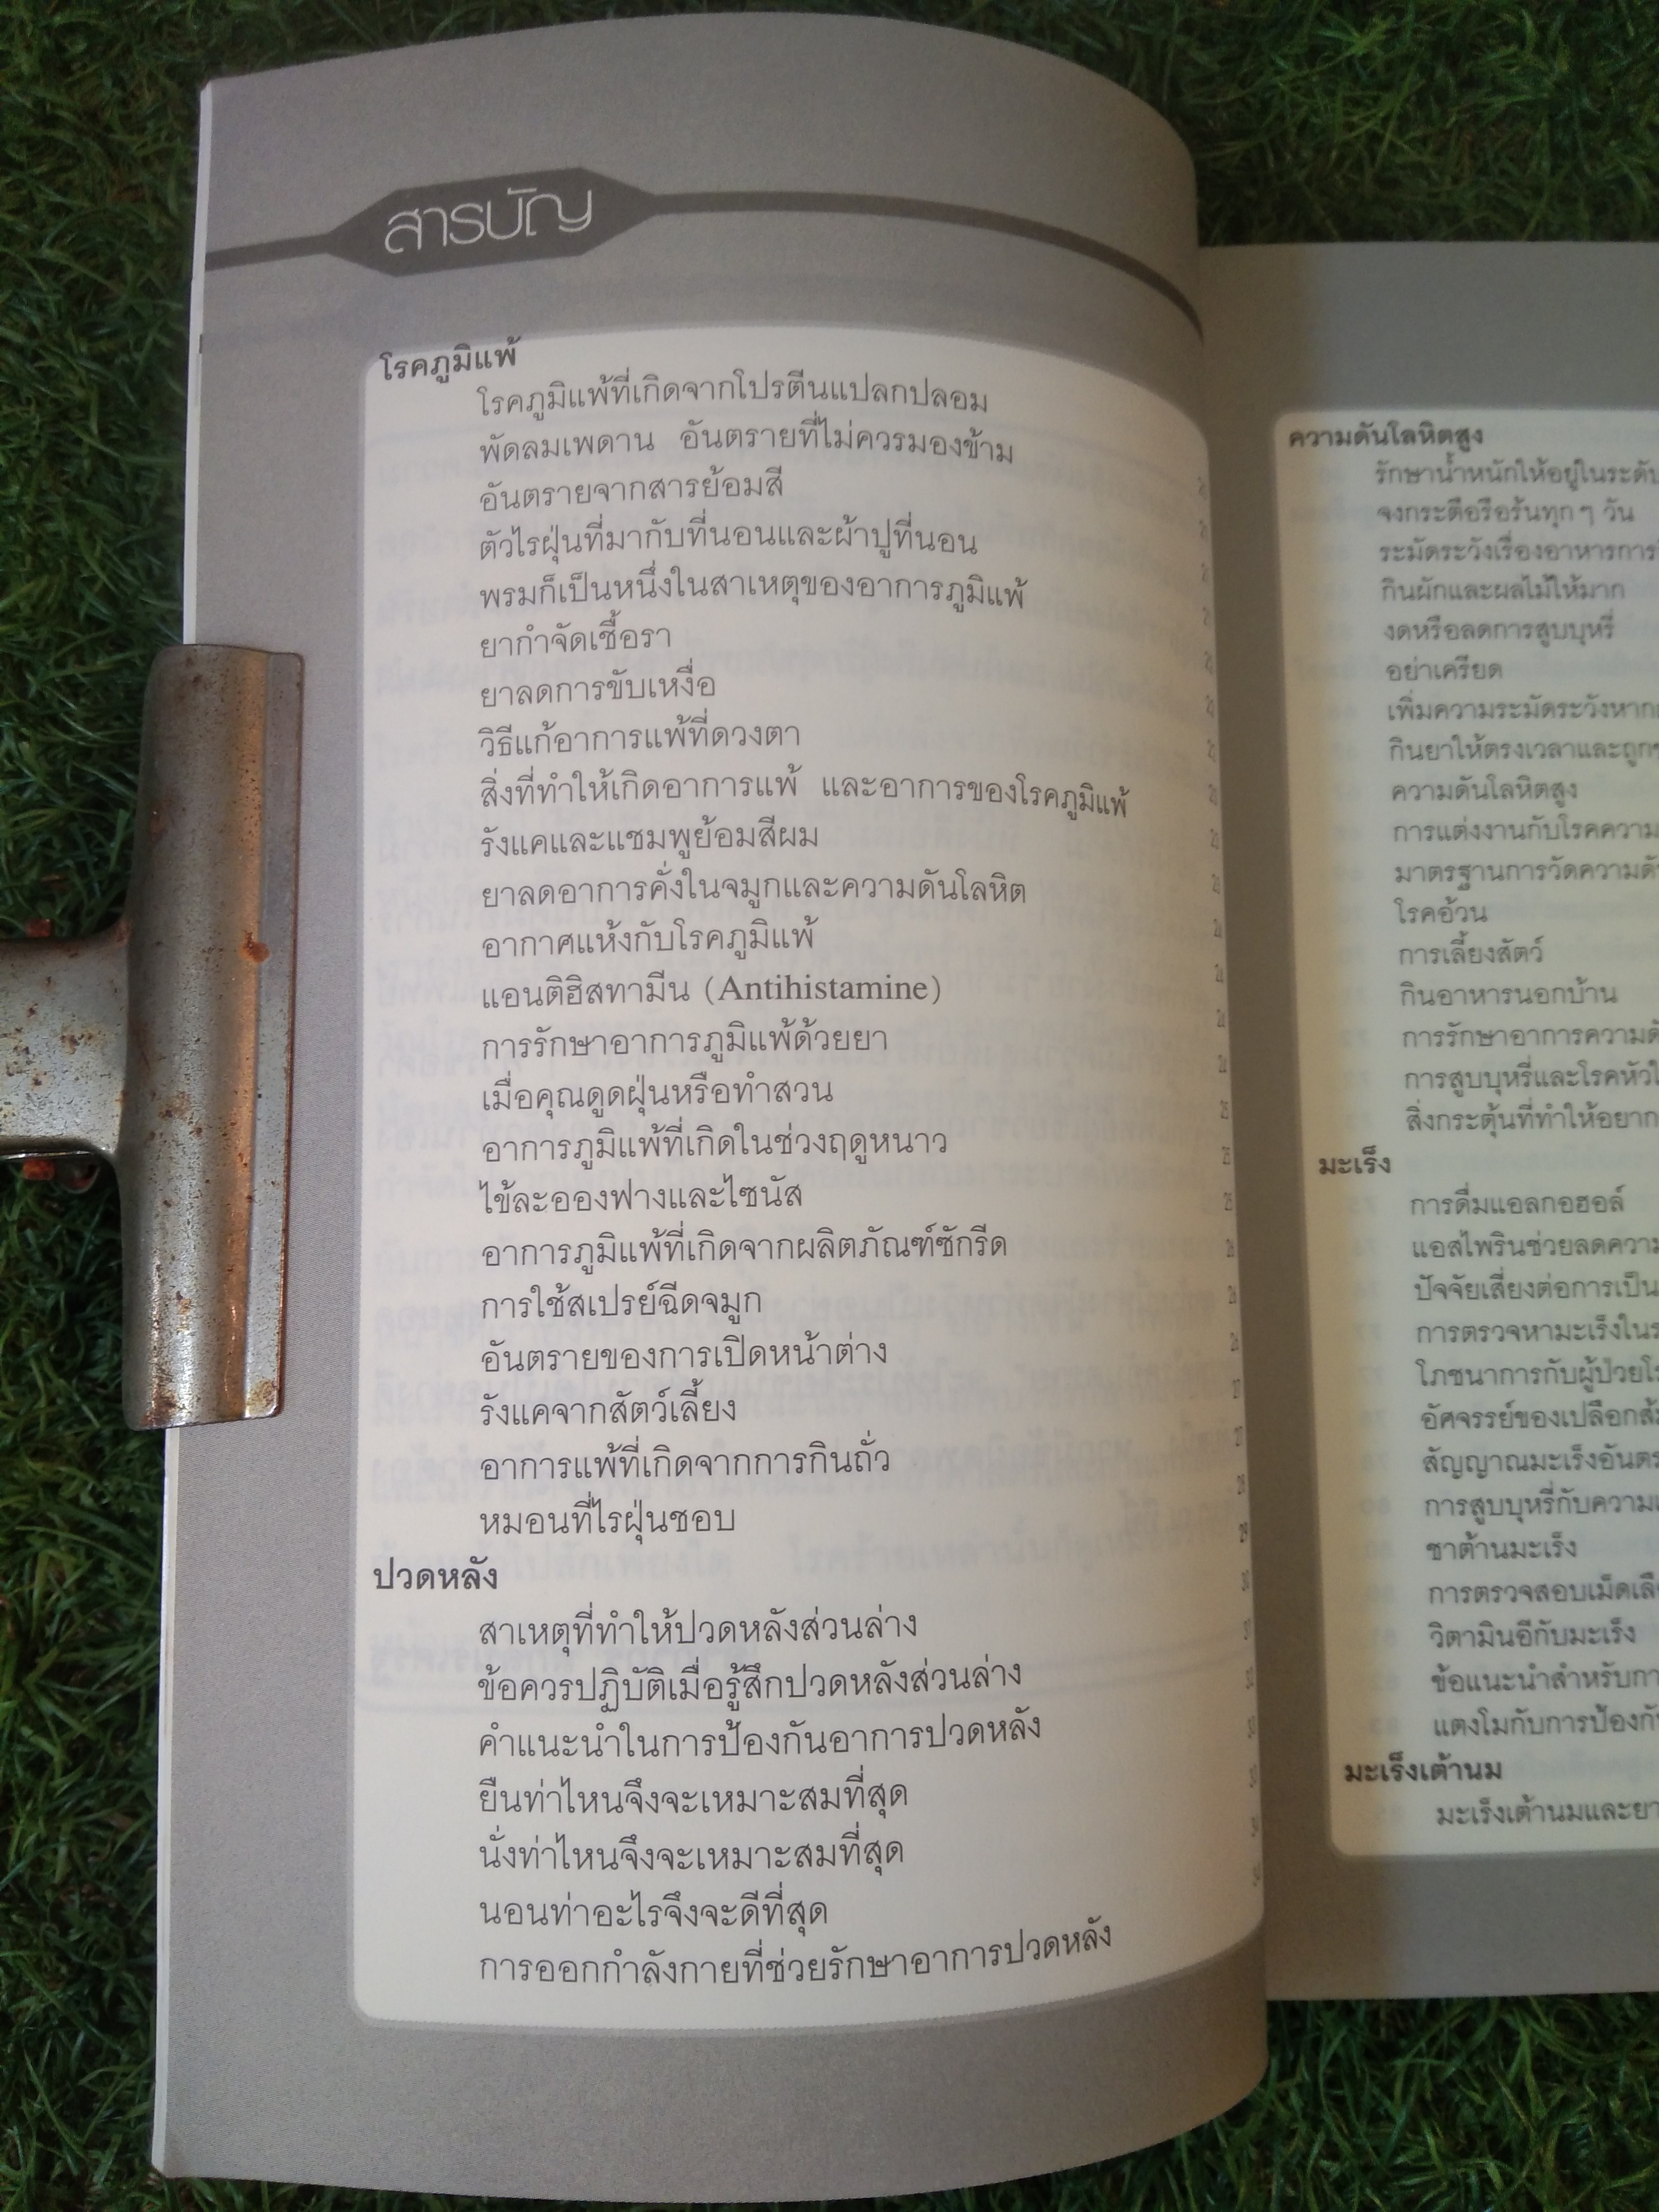 สารบัญ
โรคภูมิแพ้
โรคภูมิแพ้ที่เกิดจากโปรตีนแปลกปลอม
พัดลมเพดาน อันตรายที่ไม่ควรมองข้าม
อันตรายจากสารย้อมสี
ตัวไรฝุ่นที่มากับที่นอนและผ้าปูที่นอน
พรมก็เป็นหนึ่งในสาเหตุของอาการภูมิแพ้
ยากำจัดเชื้อรา
ยาลดการขับเหงื่อ
วิธีแก้อาการแพ้ที่ดวงตา
สิ่งที่ทำให้เกิดอาการแพ้ และอาการของโรคภูมิแพ้
รังแคและแชมพูย้อมสีผม
ยาลดอาการคั่งในจมูกและความดันโลหิต
อากาศแห้งกับโรคภูมิแพ้
แอนติฮิสทามีน (Antihistamine)
การรักษาอาการภูมิแพ้ด้วยยา
เมื่อคุณดูดฝุ่นหรือทำสวน
อาการภูมิแพ้ที่เกิดในช่วงฤดูหนาว
ไข้ละอองฟางและไซนัส
อาการภูมิแพ้ที่เกิดจากผลิตภัณฑ์ซักรีด
การใช้สเปรย์ฉีดจมูก
อันตรายของการเปิดหน้าต่าง
รังแคจากสัตว์เลี้ยง
อาการแพ้ที่เกิดจากการกินถั่ว
หมอนที่ไรฝุ่นชอบ
ปวดหลัง
สาเหตุที่ทำให้ปวดหลังส่วนล่าง
ข้อควรปฏิบัติเมื่อรู้สึกปวดหลังส่วนล่าง
คำแนะนำในการป้องกันอาการปวดหลัง
ยืนท่าไหนจึงจะเหมาะสมที่สุด
นั่งท่าไหนจึงจะเหมาะสมที่สุด
นอนท่าอะไรจึงจะดีที่สุด
การออกกำลังกายที่ช่วยรักษาอาการปวดหลัง
ความดันโลหิตสูง
รักษาน้ำหนักให้อยู่ในระดับ
จงกระตือรือร้นทุก ๆ วัน
ระมัดระวังเรื่องอาหารการ
กินผักและผลไม้ให้มาก
งดหรือลดการสูบบุหรี่
อย่าเครียด
เพิ่มความระมัดระวังหาก
กินยาให้ตรงเวลาและถูก
ความดันโลหิตสูง
การแต่งงานกับโรคความ
มาตรฐานการวัดความดั
โรคอ้วน
การเลี้ยงสัตว์
กินอาหารนอกบ้าน
การรักษาอาการความดั
การสูบบุหรี่และโรคหัวใ
สิ่งกระตุ้นที่ทำให้อยาก
มะเร็ง
การดื่มแอลกอฮอล์
แอสไพรินช่วยลดความ
ปัจจัยเสี่ยงต่อการเป็น
การตรวจหามะเร็งใน
โภชนาการกับผู้ป่วยโ
อัศจรรย์ของเปลือกส้ม
สัญญาณมะเร็งอันตร
การสูบบุหรี่กับความ
ชาต้านมะเร็ง
การตรวจสอบเม็ดเลื
วิตามินอีกับมะเร็ง
ข้อแนะนำสำหรับกา
แตงโมกับการป้องกั
มะเร็งเต้านม
มะเร็งเต้านมและยา